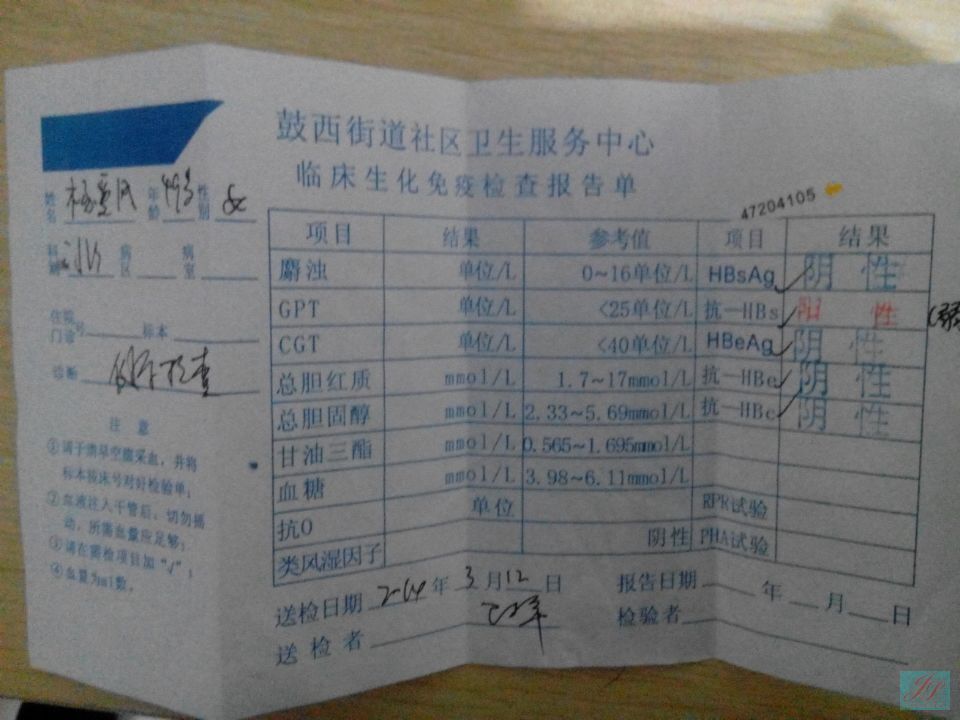 鼓西街道社区卫生服务中心
临床生化免疫检查报告单
47204105
姓名 年龄 性别 女
科别 病区 病室
住院 门诊 号 标本
诊断
注意
①请于清早空腹采血,并将
标本按床号对好检验单;
②血液注入干管后,切勿摇
动,所需血量应足够;
③请在需检项目加“√”;
④血量为ml数。
项目 结果 参考值 项目 结果
麝浊 单位/L 0~16单位/L HBsAg 阴性
GPT 单位/L <25单位/L 抗一HBs 阳性
CGT 单位/L <40单位/L HBeAg 阴性
总胆红质 mmol/L 1.7~17mmol/L 抗一HBe 阴性
总胆固醇 mmol/L 2.33~5.69mmol/L 抗一HBc 阴性
甘油三酯 mmol/L 0.565~1.695mmol/L
血糖 mmol/L 3.98~6.11mmol/L
抗O 单位 RPR试验
类风湿因子 阴性 PHA试验
送检日期 年 3 月 12 日 报告日期 年 月 日
送检者 检验者